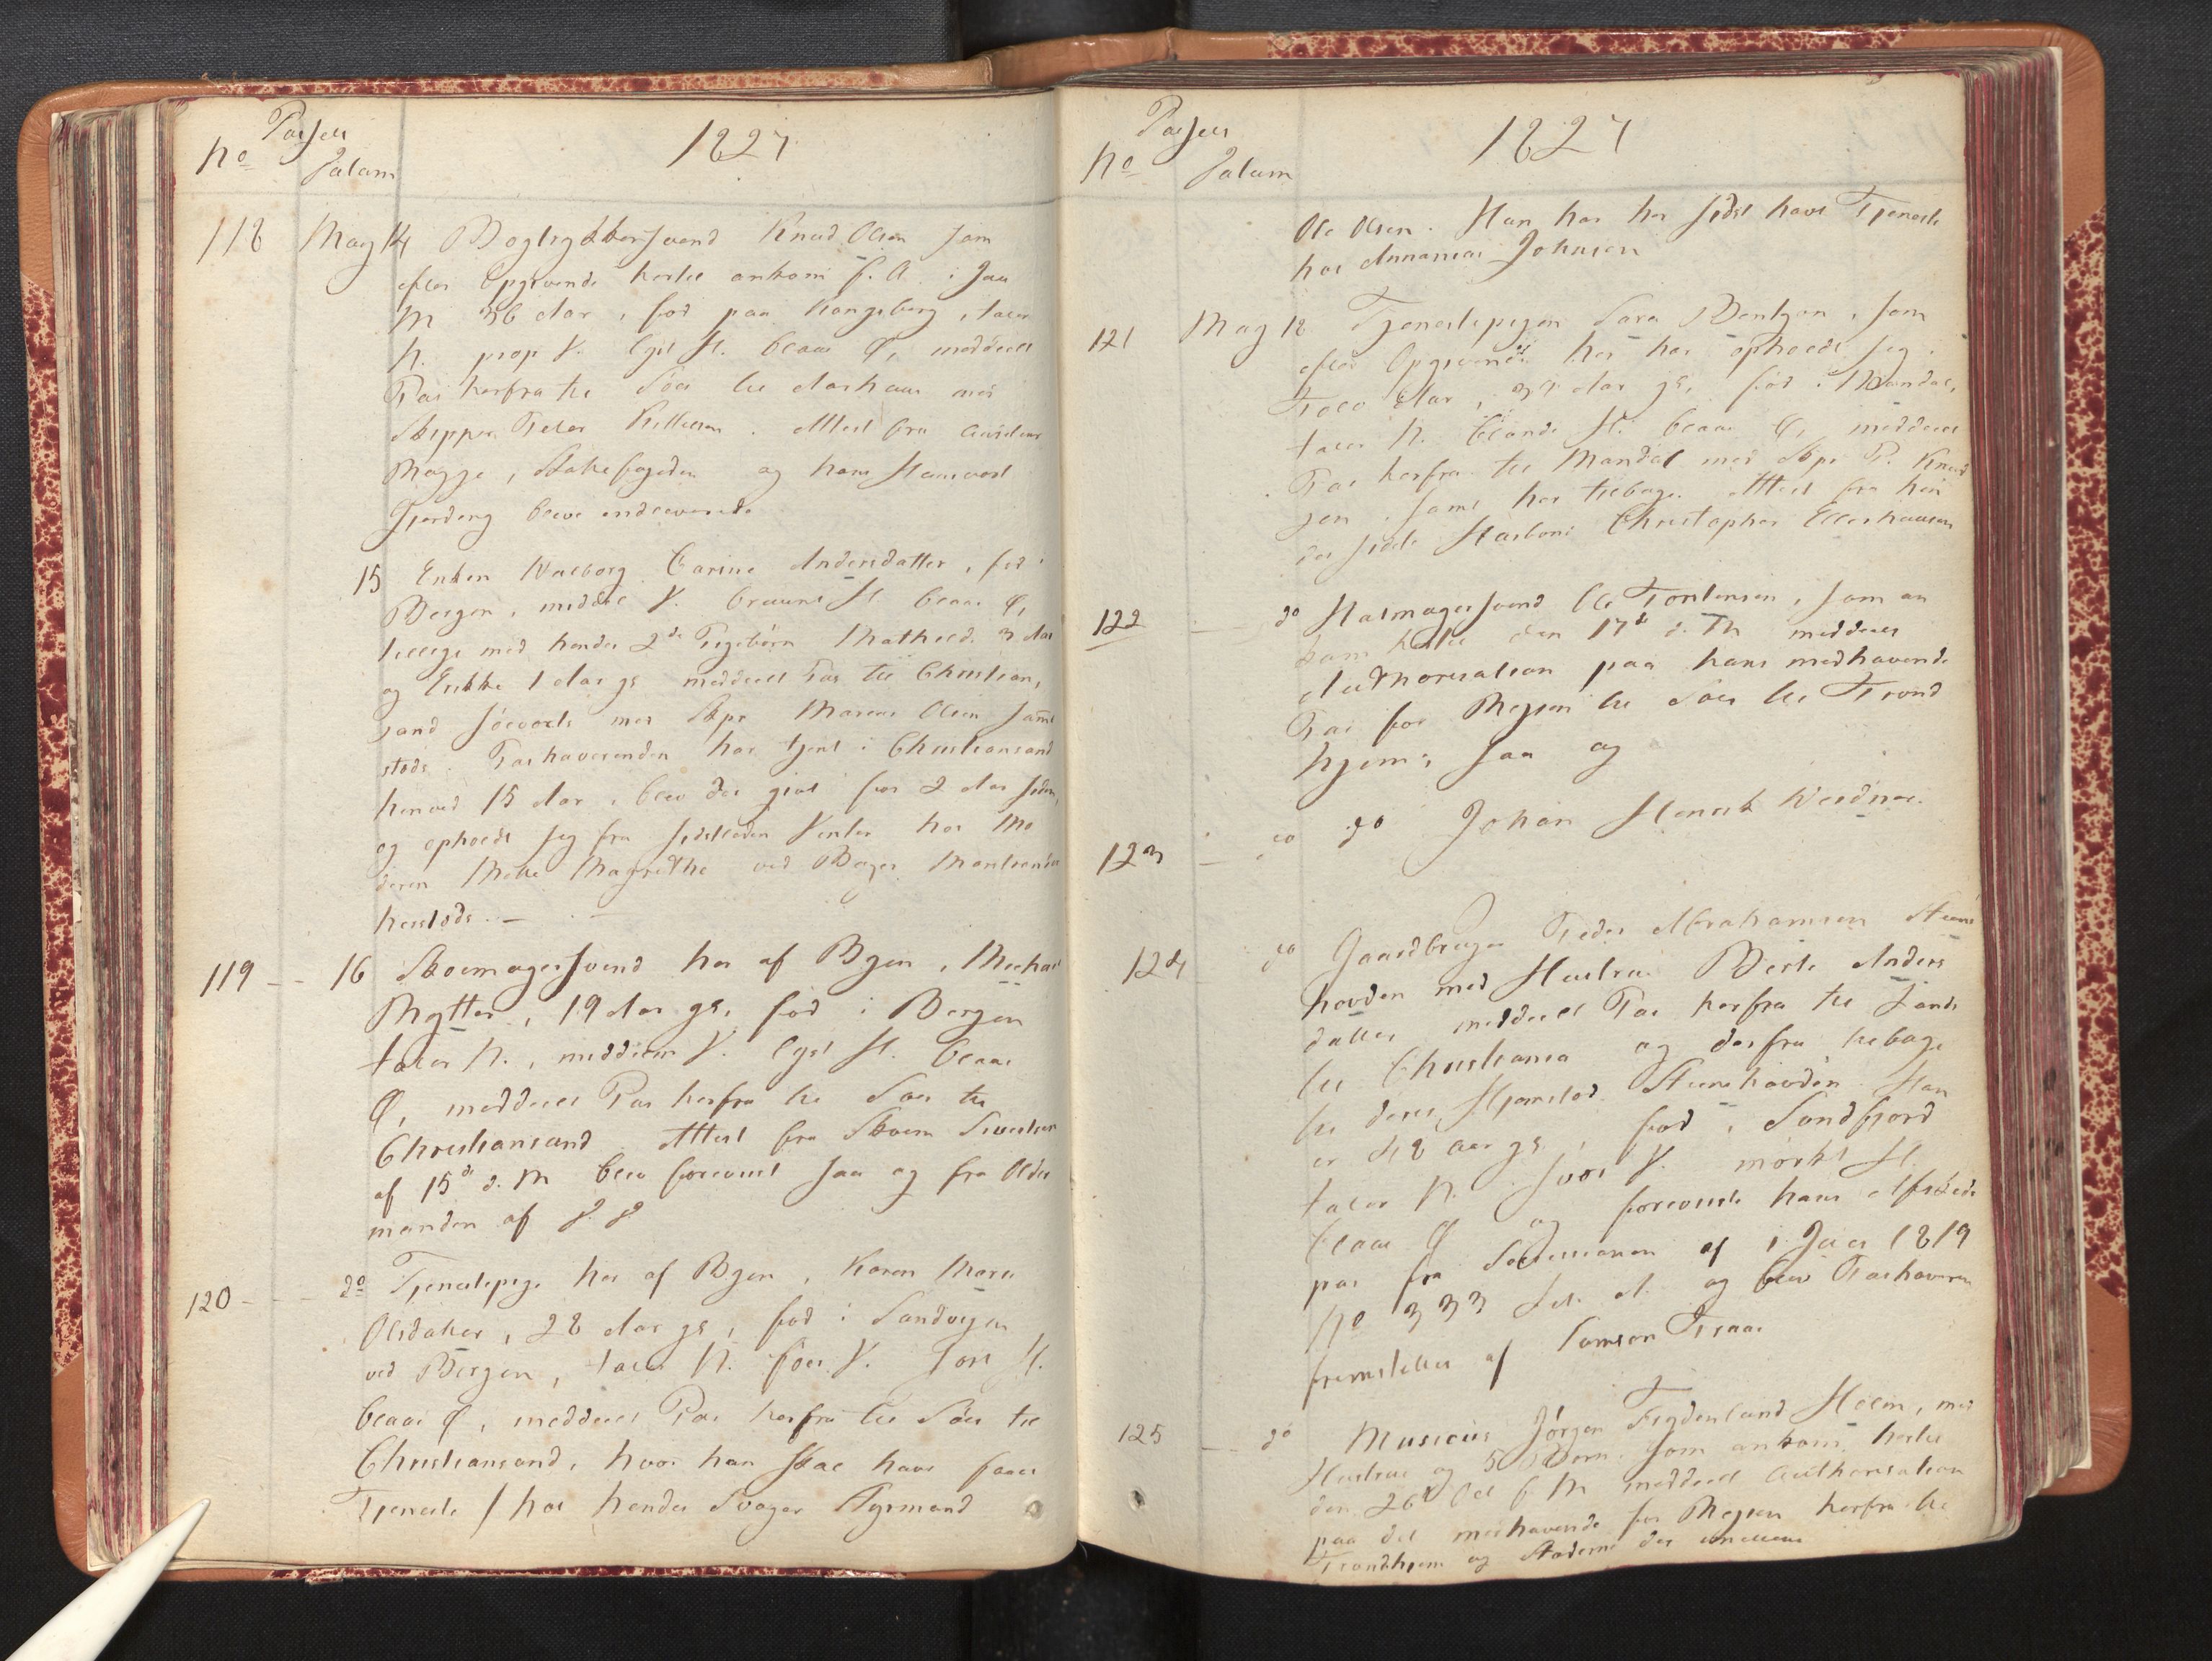 Passets
No Datum
1827
118 May 14 Bogtrykkersvend Knud Olsen som
efter Opgivende hertil ankom f. A. i Jan
M 36 Aar, fød paa Kongsberg, taler
N. prop V. lyst H. blaae Ø, meddeelt
Pas herfra til Søes til Aarhuus med
Skipper Peder Pettersen. Attest fra
Magge, og hans
bleve indleverede
15 Enken Walborg Carine Andersdatter, fød i
Bergen, middel V. bruunt H. blaae Ø,
tillige med hendes 2de Pigebørn Mathilde 3 Aar
og Erikke 1 Aar gl meddeelt Pas til Christian,
sand søeverts med Skpr Marcus Olsen samt
steds. Pashaverinden har tjent i Christiansand
henved 15 Aar, blev der givt for 2 Aar siden,
og opholdt sig fra sidstleden Vinter hos Mo
deren Mette Magrethe ved Bager
hersteds.—
119 — 16 Skoemagersvend her af Byen, Michael
Rytter, 19 Aar gl, fød i Bergen
taler N., middelm V. lyst H. blaae
Ø, meddeelt Pas herfra til Søes til
Christiansand. Attest fra Skoem Sivertsen
af 15de d. M blev foreviist saa og fra Older
manden af S. D
120 — do Tjenestepige her af Byen, Karen Marie
Olsdatter, 28 Aar gl, fød i Sandvigen
ved Bergen, taler N. før V. sort H.
blaae Ø, meddeelt Pas herfra til Søes til
Christiansand, hvor hun skal have faaet
Tjeneste / hos hendes Svoger Styrmand
Passets
No Datum
1827
Ole Olsen. Hun har her sidst havt Tjeneste
hos Annanias Johnsen
121 May 18 Tjenestepigen Sara Bentzon, som
efter Opgivende her har opholdt sig
Aar, 34 Aar gl, fød i Mandal,
taler N. blondt H. blaae Ø, meddeelt
Pas herfra til Mandal med Skpr P. Knud
sen, samt her tilbage. Attest fra hen
des sidste Huusbond Christopher Ellerhusen
122 — do Hatmagersvend Ole Torstensen, som an
kom hertil den 17de d. M meddeelt
Authorisation paa hans medhavende
Pas for Rejsen til Søes til Trond
hjem; saa og
123 — do do Johan Henrik Weidner.
124 do Gaardbruger Peder Abrahamsen Steens
hovden med Hustrue Berte Anders
datter meddeelt Pas herfra til Lands
til Christiania og derfra tilbage
til deres Hjemsted Steenshovden. Han
er 48 aar gl, fød i Søndfjord
taler N. svær V. mørkt H.
blaae Ø og foreviste hans Afskeeds
pas fra af 1 Juli 1819
No 333 Lit. A. og blev Pashaveren
fremstillet af Samson Traae
125 — do Musicus Jørgen Frydenlund Holm, med
Hustrue og 5 Børn som ankom hertil
den 26de Oct f. M meddeelt Authorisation
paa det medhavende for Rejsen herfra til
Trondhjem og Stæderne der imellem